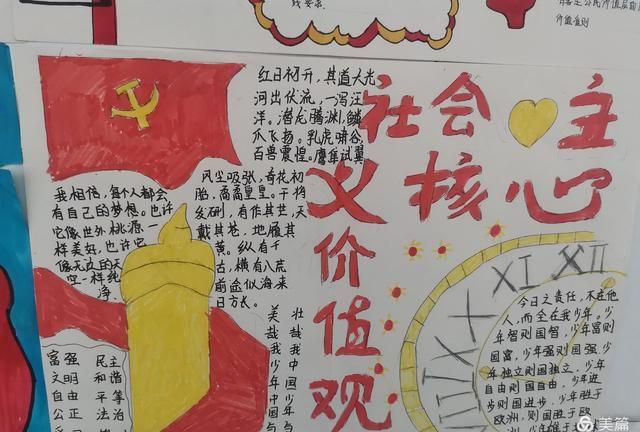 线要求.
价值准则
社会主
义核心
价
值
观
红日初升，其道大光
河出伏流，一泻汪
洋。潜龙腾渊，鳞
爪飞扬。乳虎啸谷，
百兽震惶。鹰隼试翼
风尘吸张，奇花初
胎，矞矞皇皇。干将
发硎，有作其芒，天
戴其苍，地履其
黄。纵有千
古，横有八荒
前途似海，来
日方长。
我相信，每个人都会
有自己的梦想。也许
它像世外桃源一
样美好，也许它
像无边的天
空一样纯
净.
美哉我少年中国与
壮哉我中国少年
富强 民主
文明 和谐
自由 平等
公正 法治
XI XII
今日之责任，不在他
人，而全在我少年。少
年智则国智，少年富则
国富，少年强则国强，少
年独立则国独立，少年
自由则国自由，少年进
步则国进步，少年胜于
欧洲，则国胜于欧
美篇